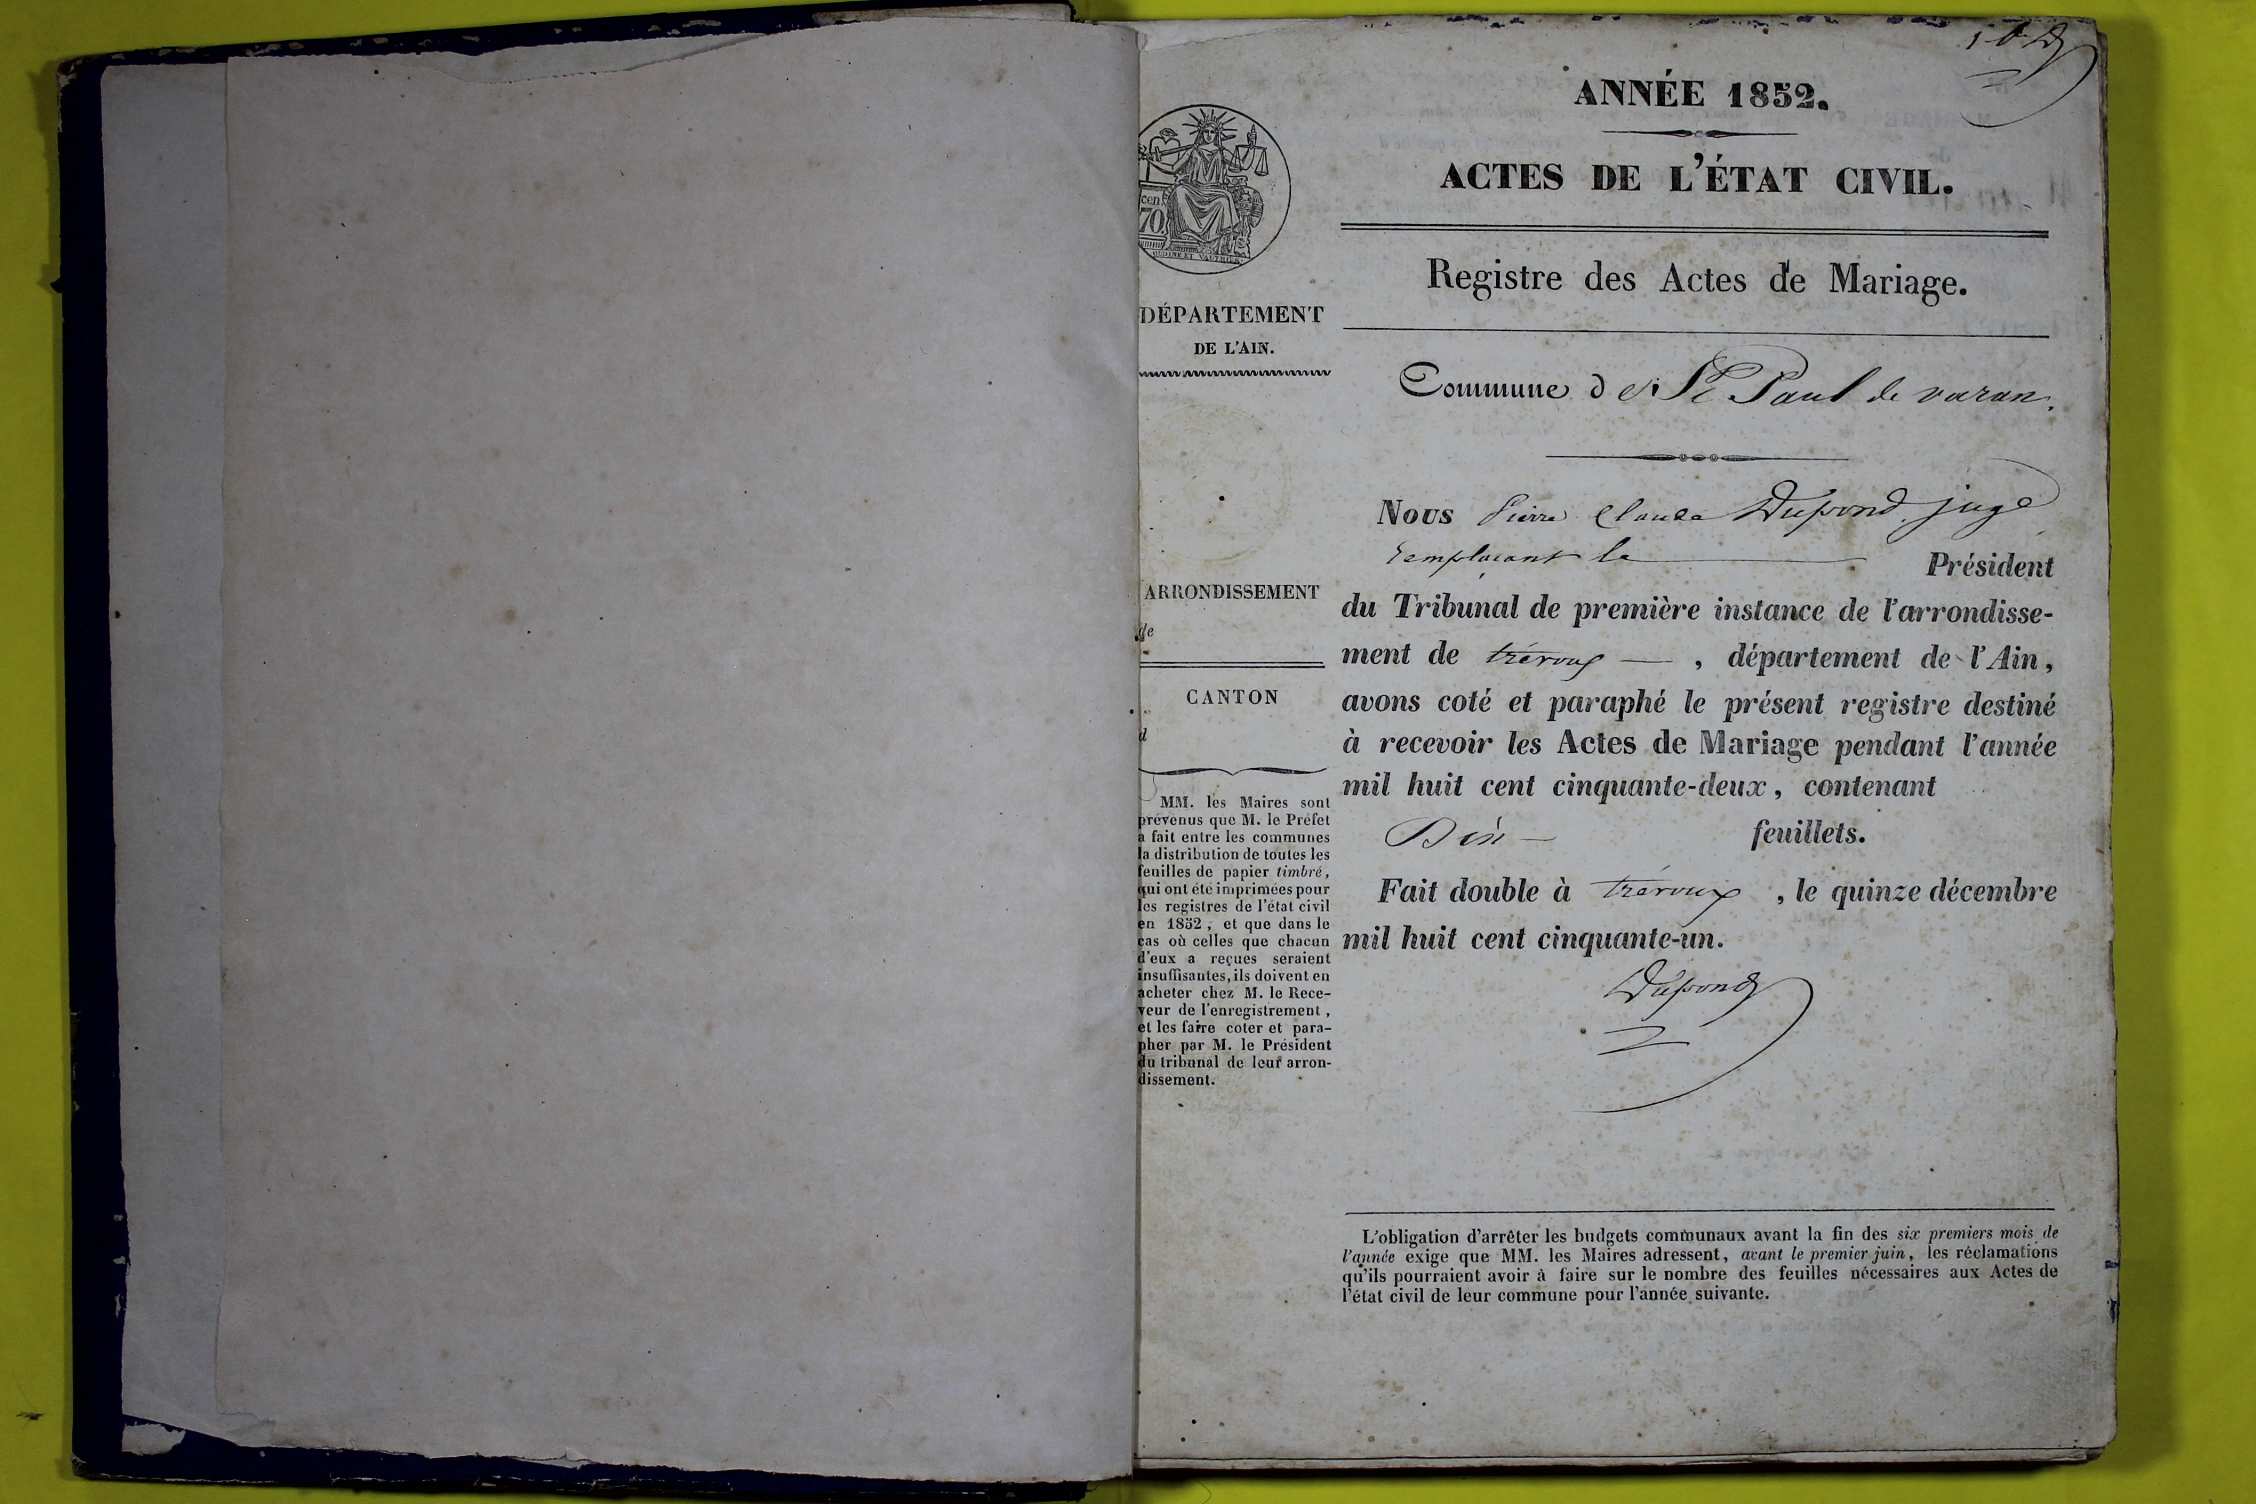 1-D
ANNÉE 1852.
ACTES DE L'ÉTAT CIVIL.
Registre des Actes de Mariage.
Commune de St Paul de varax.
Nous Pierre Claude Dupond juge
remplacant le Président
du Tribunal de première instance de l'arrondisse-
ment de trévoux — , département de l'Ain,
avons coté et paraphé le présent registre destiné
à recevoir les Actes de Mariage pendant l'année
mil huit cent cinquante-deux, contenant
Dix — feuillets.
Fait double à trévoux , le quinze décembre
mil huit cent cinquante-un.
Dupond
L'obligation d'arrêter les budgets communaux avant la fin des six premiers mois de
l'année exige que MM. les Maires adressent, avant le premier juin, les réclamations
qu'ils pourraient avoir à faire sur le nombre des feuilles nécessaires aux Actes de
l'état civil de leur commune pour l'année suivante.
cen
70
DÉPARTEMENT
DE L'AIN.
ARRONDISSEMENT
de
CANTON
d
MM. les Maires sont
prévenus que M. le Préfet
a fait entre les communes
la distribution de toutes les
feuilles de papier timbré,
qui ont été imprimées pour
les registres de l'état civil
en 1852, et que dans le
cas où celles que chacun
d'eux a reçues seraient
insuffisantes, ils doivent en
acheter chez M. le Rece-
veur de l'enregistrement,
et les faire coter et para-
pher par M. le Président
du tribunal de leur arron-
dissement.